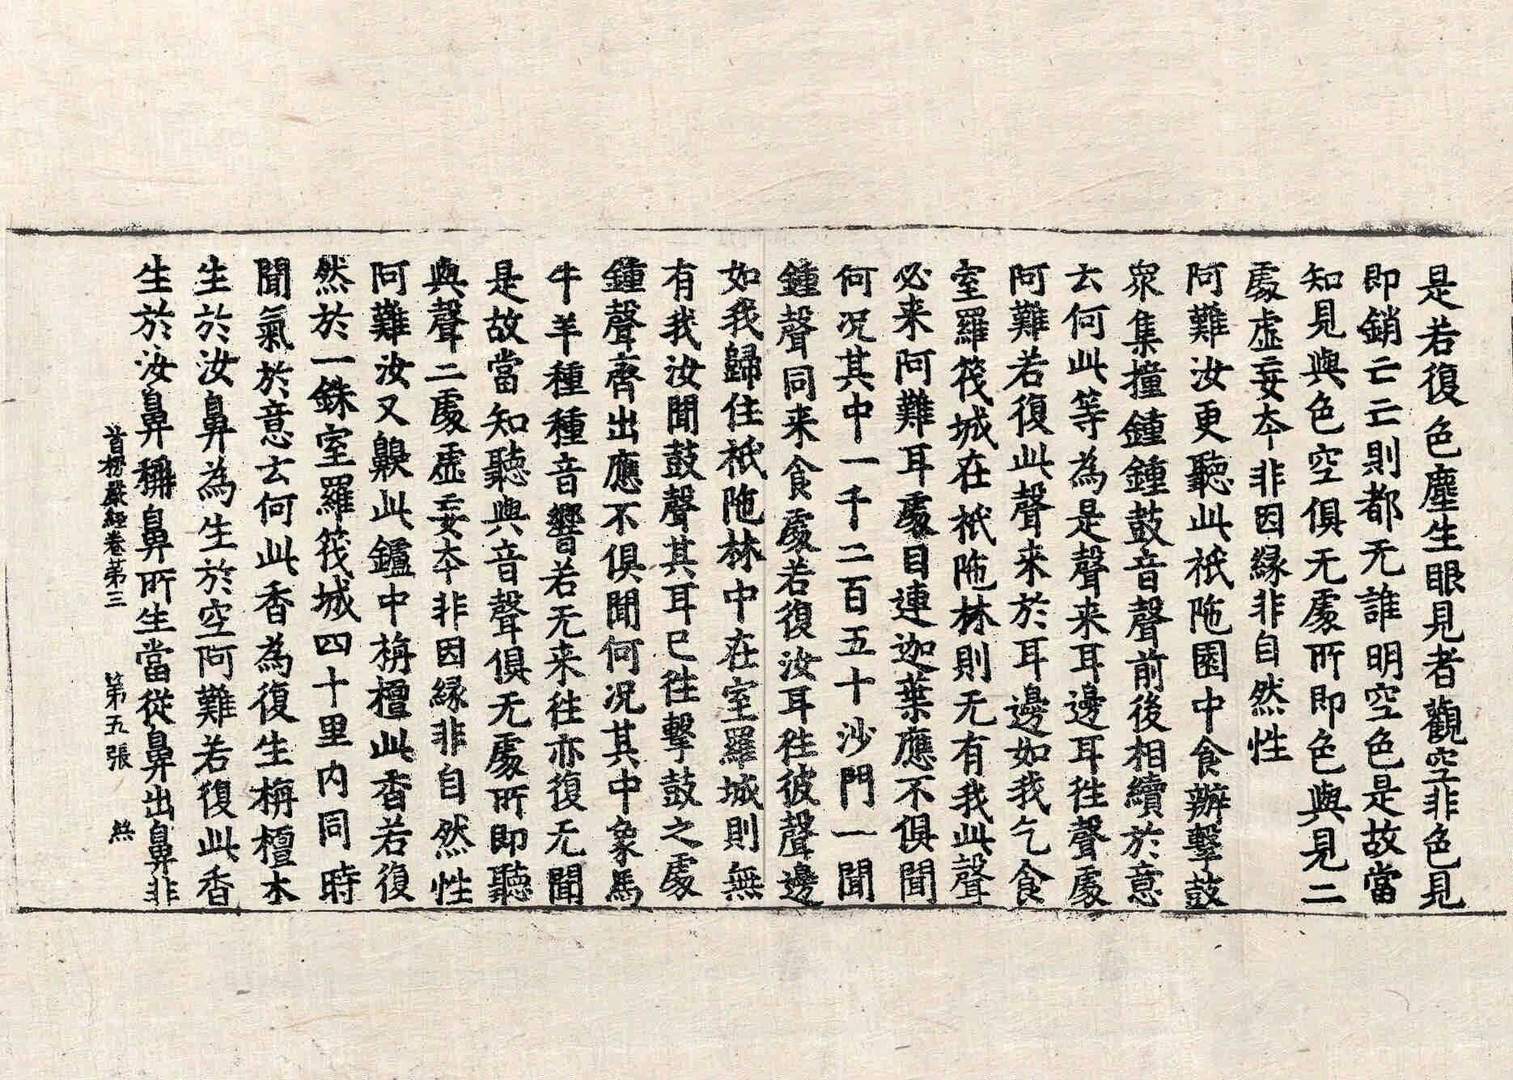 是若復色塵生眼見者觀空非色見
即銷亡亡則都无誰明空色是故當
知見與色空俱无處所即色與見二
處虛妄本非因緣非自然性
阿難汝更聽此祇陁園中食辦擊鼓
眾集撞鍾鍾鼓音聲前後相續於意
云何此等為是聲来耳邊耳往聲處
阿難若復此聲来於耳邊如我乞食
室羅筏城在祇陁林則无有我此聲
必来阿難耳處目連迦葉應不俱聞
何況其中一千二百五十沙門一聞
鍾聲同来食處若復汝耳往彼聲邊
如我歸住祇陁林中在室羅城則無
有我汝聞鼓聲其耳已往擊鼓之處
鍾聲齊出應不俱聞何況其中象馬
牛羊種種音響若无来往亦復无聞
是故當知聽與音聲俱无處所即聽
與聲二處虛妄本非因緣非自然性
阿難汝又齅此鑪中栴檀此香若復
然於一銖室羅筏城四十里内同時
聞氣於意云何此香為復生栴檀木
生於汝鼻為生於空阿難若復此香
生於汝鼻稱鼻所生當從鼻出鼻非
首楞嚴經卷第三 第五張